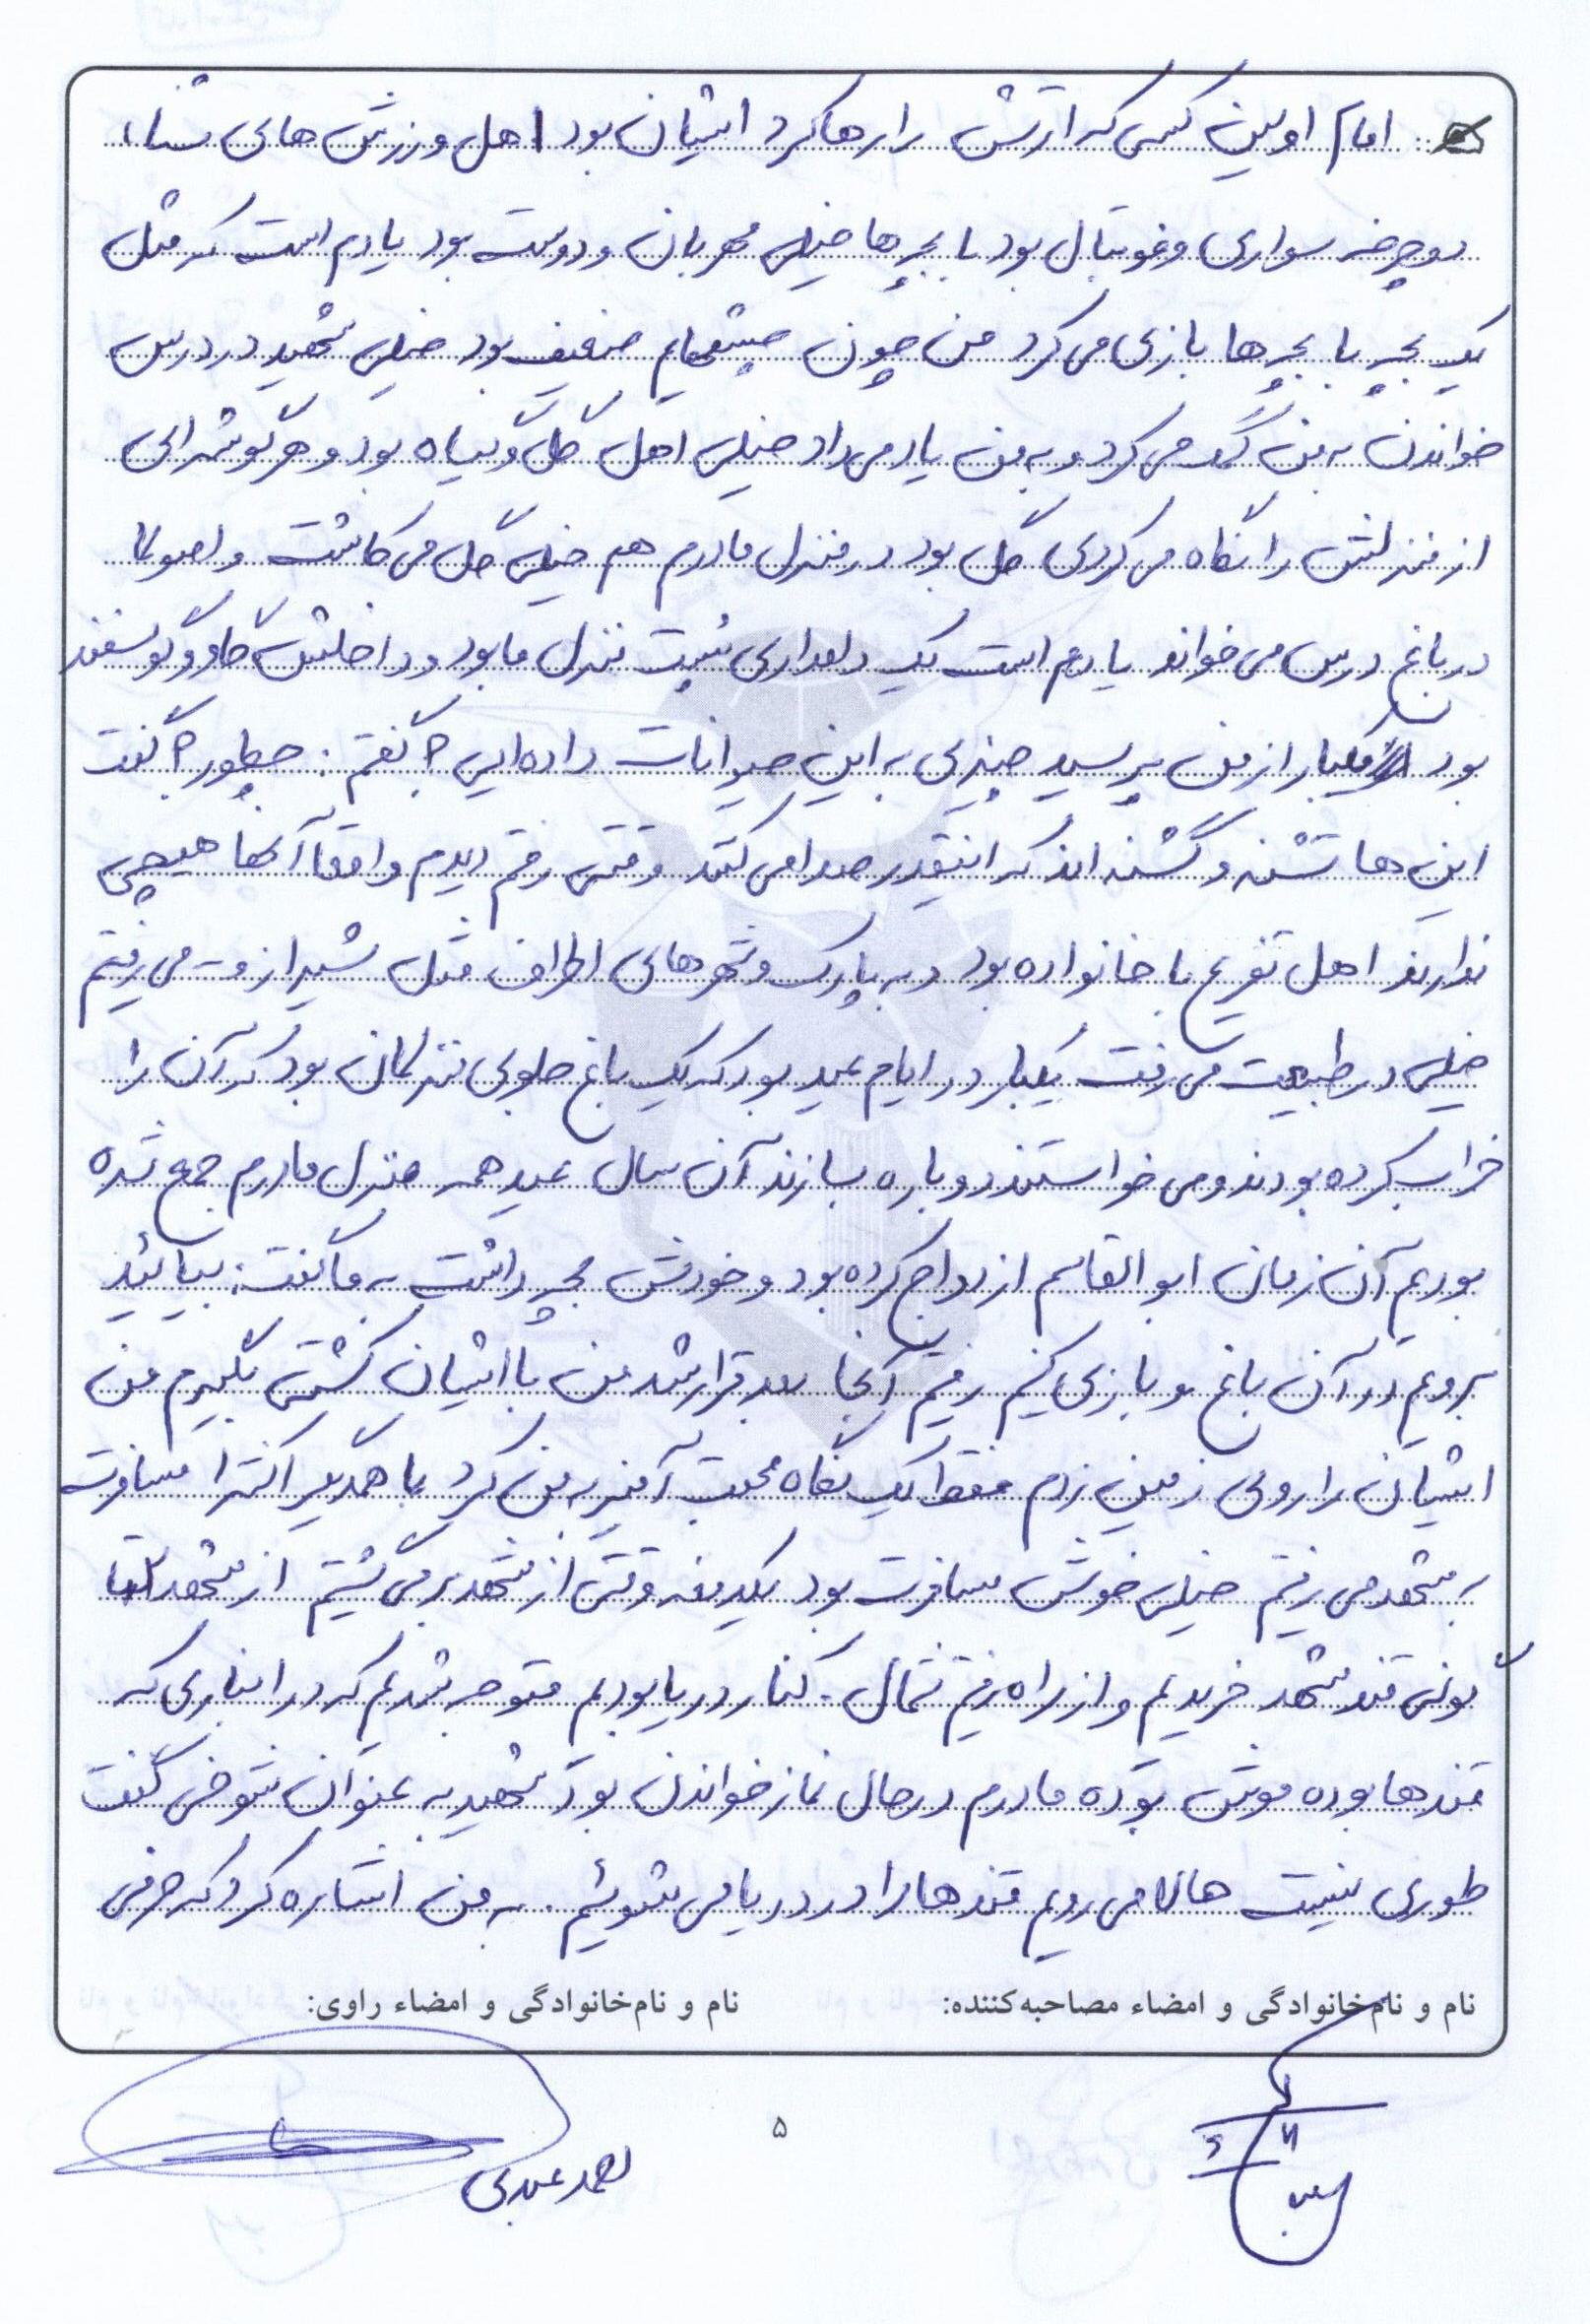 امام اولین کسی که ارتش را رها کرد ایشان بود اهل ورزش های شنا،
دوچرخه سواری و فوتبال بود با بچه ها خیلی مهربان و دوست بود یادم است که مثل
یک بچه با بچه ها بازی می کرد من چون چشمهایم ضعیف بود خیلی شهید در درس
خواندن به من کمک می کرد و به من یاد می داد خیلی اهل گل و گیاه بود و هر گوشه ای
از منزلش را نگاه می کردی گل بود در منزل مادرم هم خیلی گل می کاشت و اصولا
در باغ درس می خواند یادم است یک دامداری پشت منزل ما بود و داخلش گاو و گوسفند
بود یکبار از من پرسید چیزی به این حیوانات داده ایی؟ گفتم: چطور؟ گفت
این ها تشنه و گشنه اند که اینقدر صدا می کنند وقتی رفتم دیدم واقعاً آنها هیچی
ندارند اهل تفریح با خانواده بود و به پارک و شهرهای اطراف مثل شیراز و می رفتیم
خیلی در طبیعت می رفت یکبار در ایام عید بود که یک باغ جلوی منزلمان بود که آن را
خراب کرده بودند و می خواستند دوباره بسازند آن سال عید همه منزل مادرم جمع شده
بودیم آن زمان ابوالقاسم ازدواج کرده بود و خودش بچه داشت به ما گفت: بیائید
برویم در آن باغ و بازی کنیم رفتیم آنجا بعد قرار شد من با ایشان کشتی بگیرم من
ایشان را روی زمین زدم فقط یک نگاه محبت آمیز به من کرد با همدیگر اکثرا مسافرت
به مشهد می رفتیم خیلی خوش مسافرت بود یکدفعه وقتی از مشهد بر می گشتیم از مشهد
گونی قند مشهد خریدیم و از راه رفتیم شمال. کنار دریا بودیم متوجه شدیم که در انباری که
قندها بوده موش بوده مادرم در حال نماز خواندن بود شهید به عنوان شوخی گفت
طوری نیست حالا می رویم قندها را در دریا می شوئیم. به من اشاره کرد که حرفی
نام و نام‌خانوادگی و امضاء مصاحبه‌کننده: نام و نام‌خانوادگی و امضاء راوی:
۵